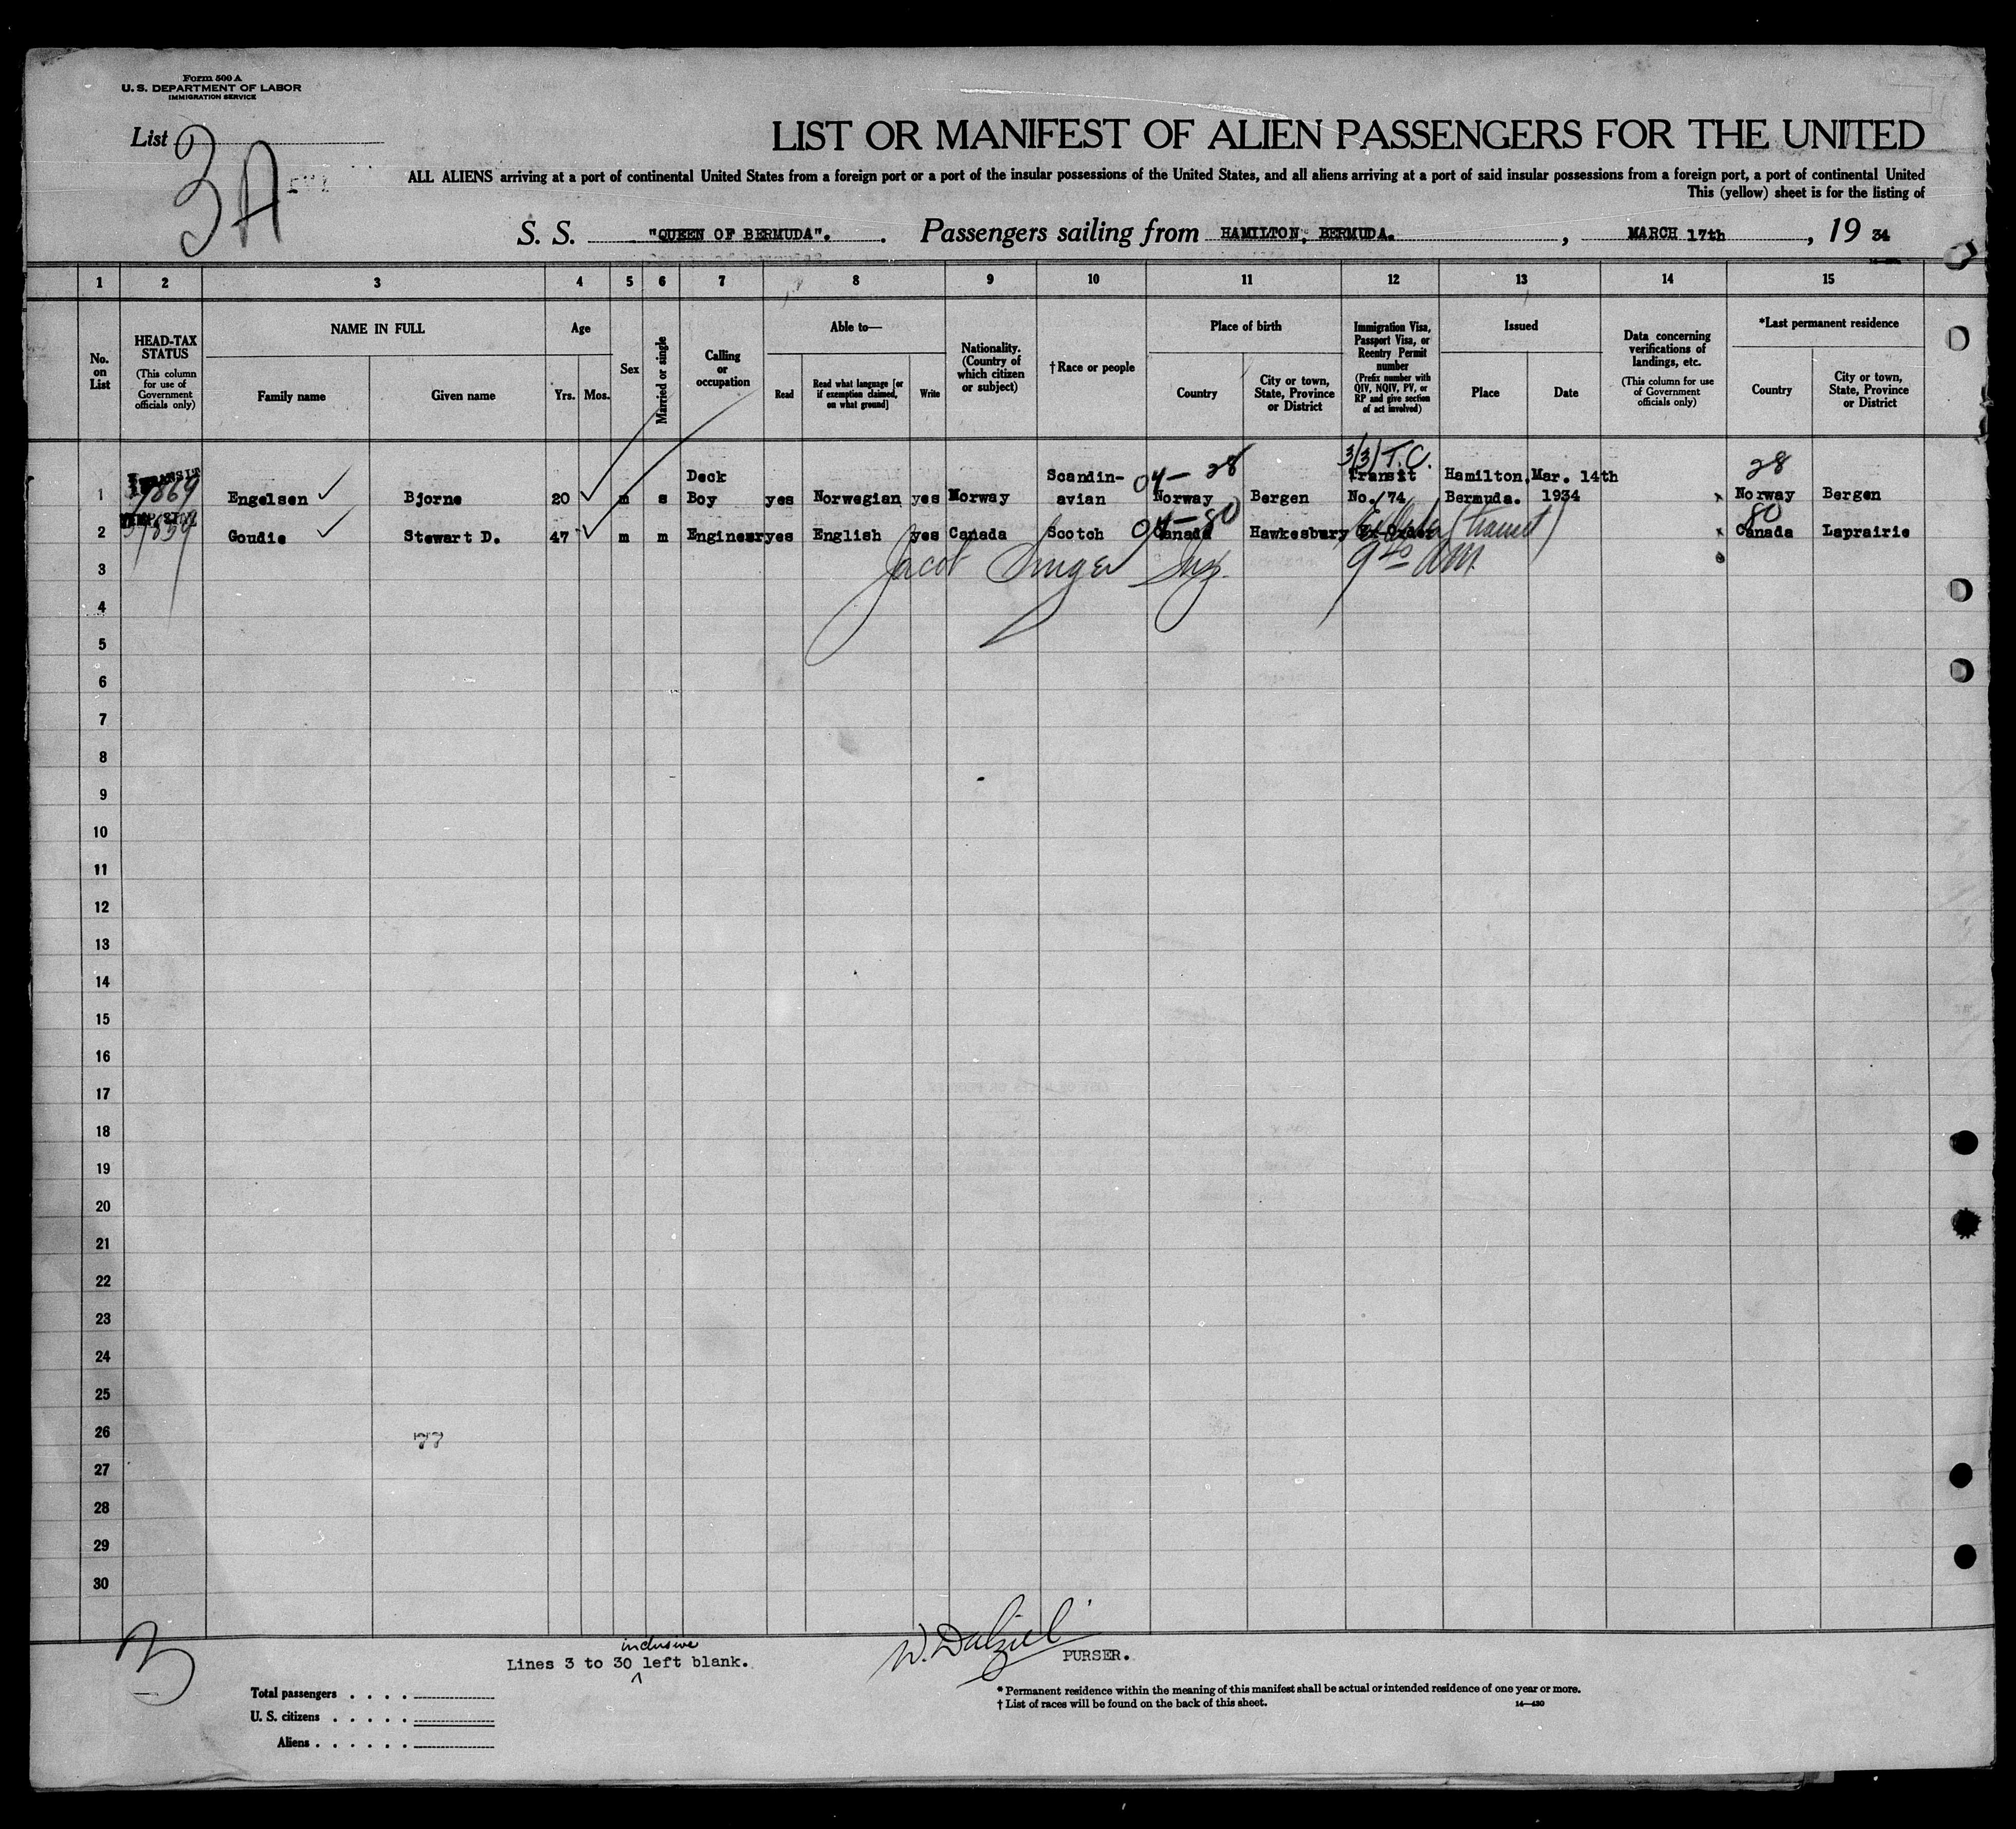 Form 500 A
U. S. DEPARTMENT OF LABOR
IMMIGRATION SERVICE
List 3A
LIST OR MANIFEST OF ALIEN PASSENGERS FOR THE UNITED
ALL ALIENS arriving at a port of continental United States from a foreign port or a port of the insular possessions of the United States, and all aliens arriving at a port of said insular possessions from a foreign port, a port of continental United
This (yellow) sheet is for the listing of
S. S. "QUEEN OF BERMUDA". Passengers sailing from HAMILTON, BERMUDA. , MARCH 17th , 19 34
1 2 3 4 5 6 7 8 9 10 11 12 13 14 15
No. on List
HEAD-TAX STATUS
(This column for use of Government officials only)
NAME IN FULL
Family name Given name
Age
Yrs. Mos.
Sex
Married or single
Calling or occupation
Able to—
Read
Read what language [or if exemption claimed, on what ground]
Write
Nationality. (Country of which citizen or subject)
† Race or people
Place of birth
Country
City or town, State, Province or District
Immigration Visa, Passport Visa, or Reentry Permit number
(Prefix number with QIV, NQIV, PV, or RP and give section of act involved)
Issued
Place Date
Data concerning verifications of landings, etc.
(This column for use of Government officials only)
*Last permanent residence
Country
City or town, State, Province or District
3/3/T.C.
28
TRANSIT Deck Scandin- 04-28 Transit Hamilton, Mar. 14th
1 Engelsen Bjorne 20 m s Boy yes Norwegian yes Norway avian Norway Bergen No. 74 Bermuda. 1934 x Norway Bergen
04-80 80
2 Goudie Stewart D. 47 m m Engineer yes English yes Canada Scotch Canada Hawkesbury Ex-Order (transit) x Canada Laprairie
3 Jacob Singer Insp. 9 40 AM
4
5
6
7
8
9
10
11
12
13
14
15
16
17
18
19
20
21
22
23
24
25
26
77
27
28
29
30
3
inclusive
Lines 3 to 30 left blank.
W. Dalziel
PURSER.
Total passengers
U. S. citizens
Aliens
* Permanent residence within the meaning of this manifest shall be actual or intended residence of one year or more.
† List of races will be found on the back of this sheet.
14—430